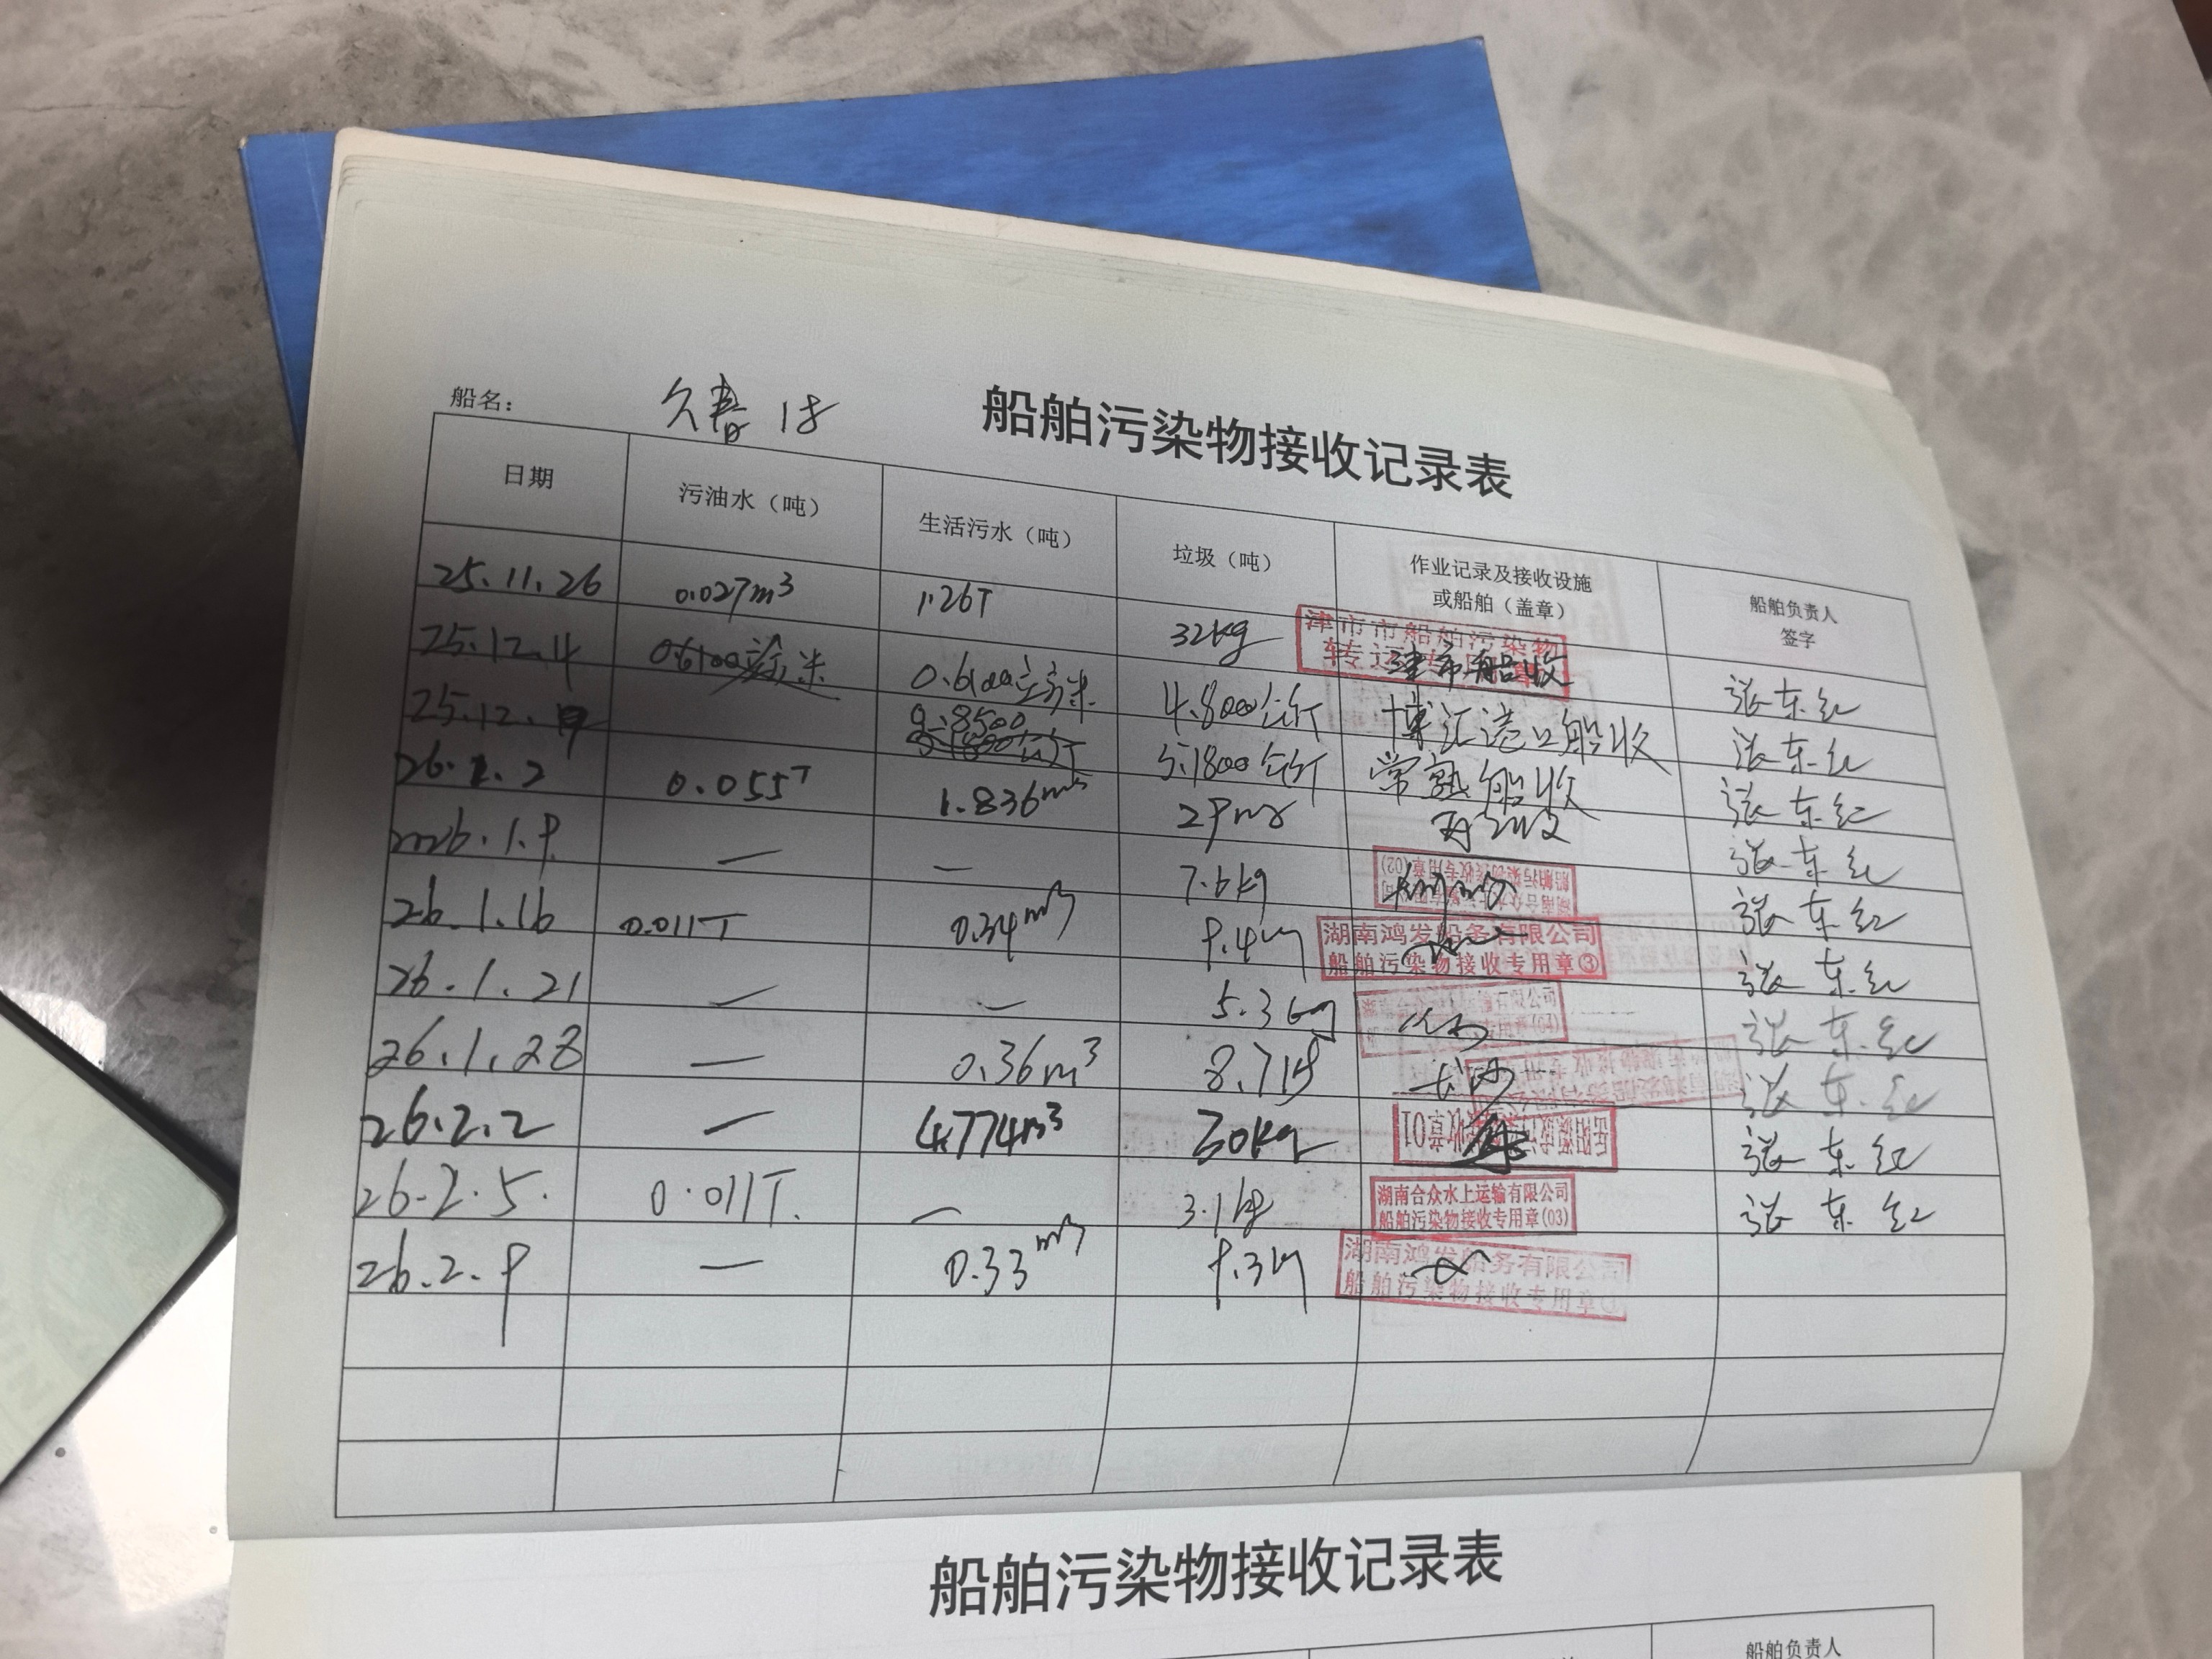 船舶污染物接收记录表
船名： 久春 18
日期 污油水（吨） 生活污水（吨） 垃圾（吨） 作业记录及接收设施或船舶（盖章） 船舶负责人签字
25.11.26 0.027m³ 1.26T 32kg 津市市船舶污染物 津市船收 张东红
25.12.4 0.6100立方米 0.6100立方米 4.800公斤 博汇港口船收 张东红
25.12. 0.8500 5.1800公斤 常熟船收 张东红
26.1.2 0.055T 1.836m³ 张东红
2026.1.9 — — 7.6kg 船舶污染物接收专用章(02) 张东红
26.1.16 0.011T 0.34m³ 9.4kg 湖南鸿发船务有限公司 船舶污染物接收专用章③ 张东红
26.1.21 — — 5.3kg 张东红
26.1.28 — 0.36m³ 8.7kg 长沙 张东红
26.2.2 — 4.774m³ 30kg 张东红
26.2.5. 0.011T. — 3.1kg 湖南合众水上运输有限公司 船舶污染物接收专用章(03) 张东红
26.2.9 — 0.33m³ 9.3kg 湖南鸿发船务有限公司 船舶污染物接收专用章
船舶污染物接收记录表
船舶负责人